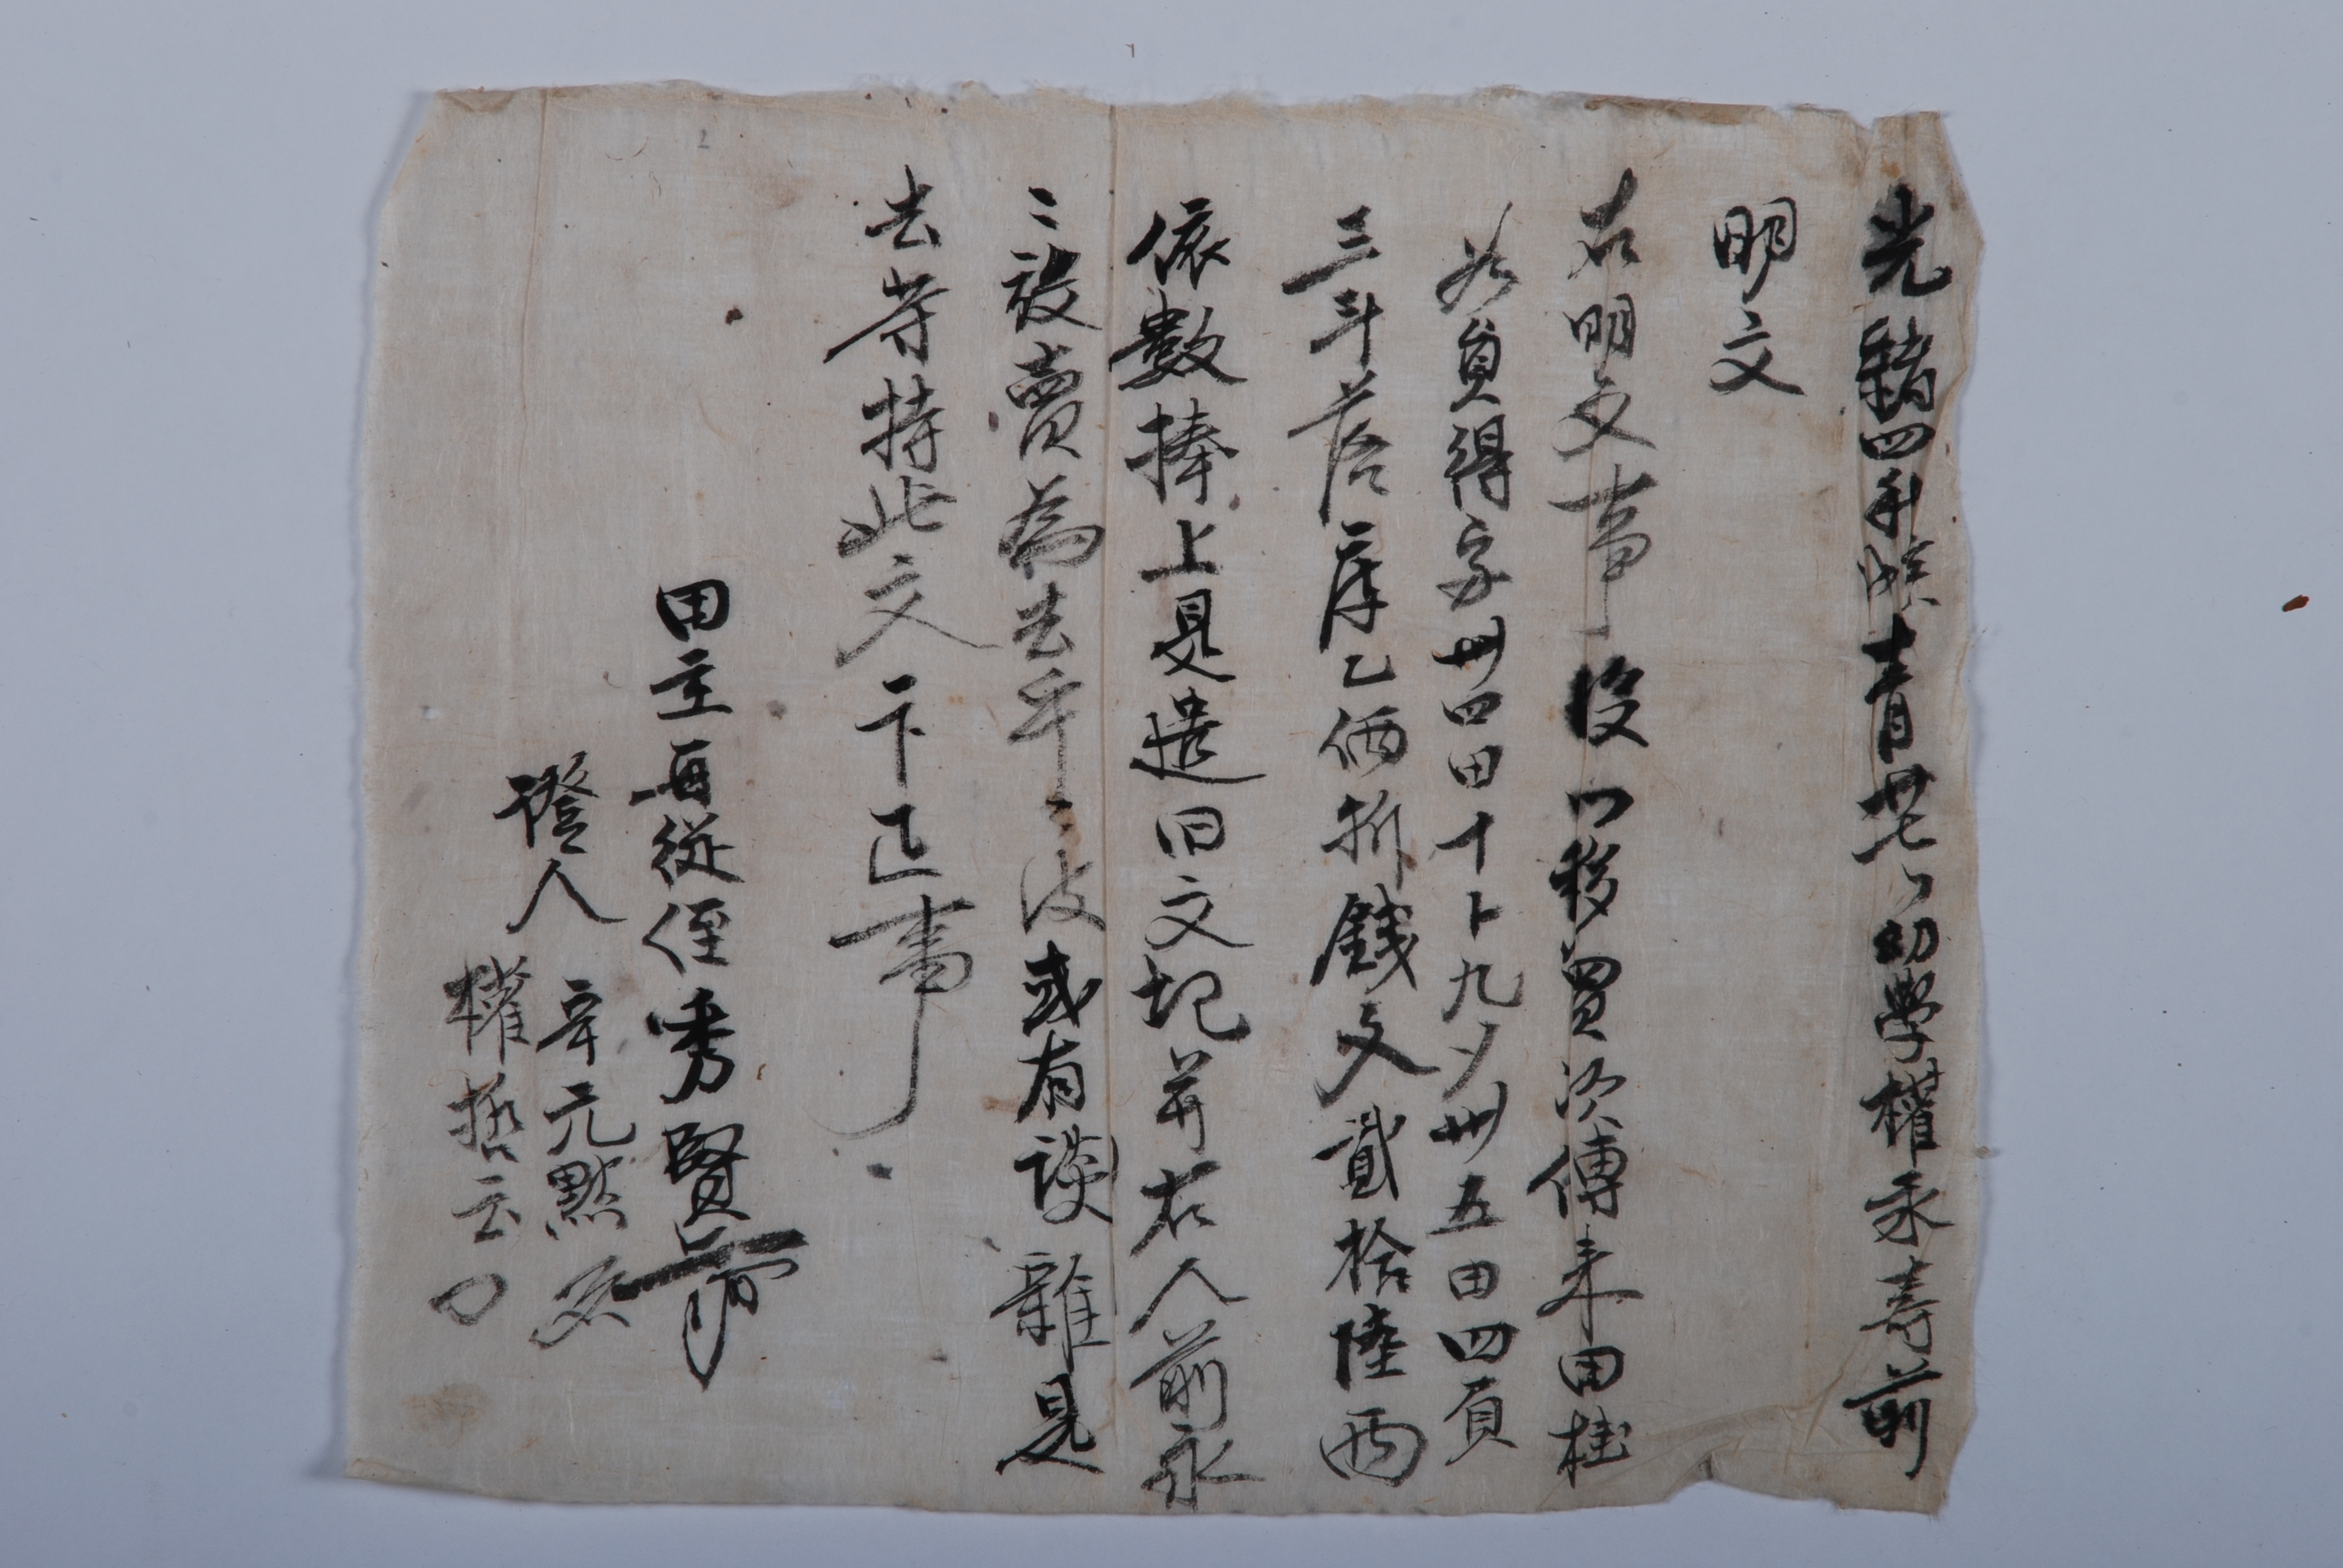 光緖四年戊寅十一月廿七日幼學權永壽前
明文
右明文事段以移買次傳來田桂
谷員得字卅四田十卜九夕卅五田四負
三斗落庫乙価折錢文貳拾陸兩
依數捧上是遣旧文記并右人前永
〻放賣爲去乎日後或有談雜是
去等持此文卞正事
田主再從侄秀賢
證人 辛元點
權哲云